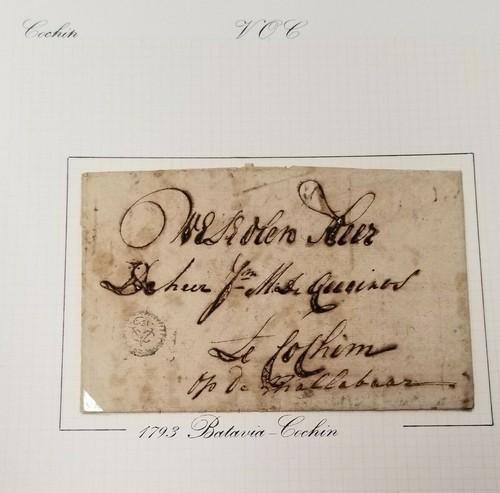 Cochin
V O C
WelEdelen Heer
De heer Jn M. De Queiros
te Cochim
op de Mallabaar
1793 Batavia – Cochin